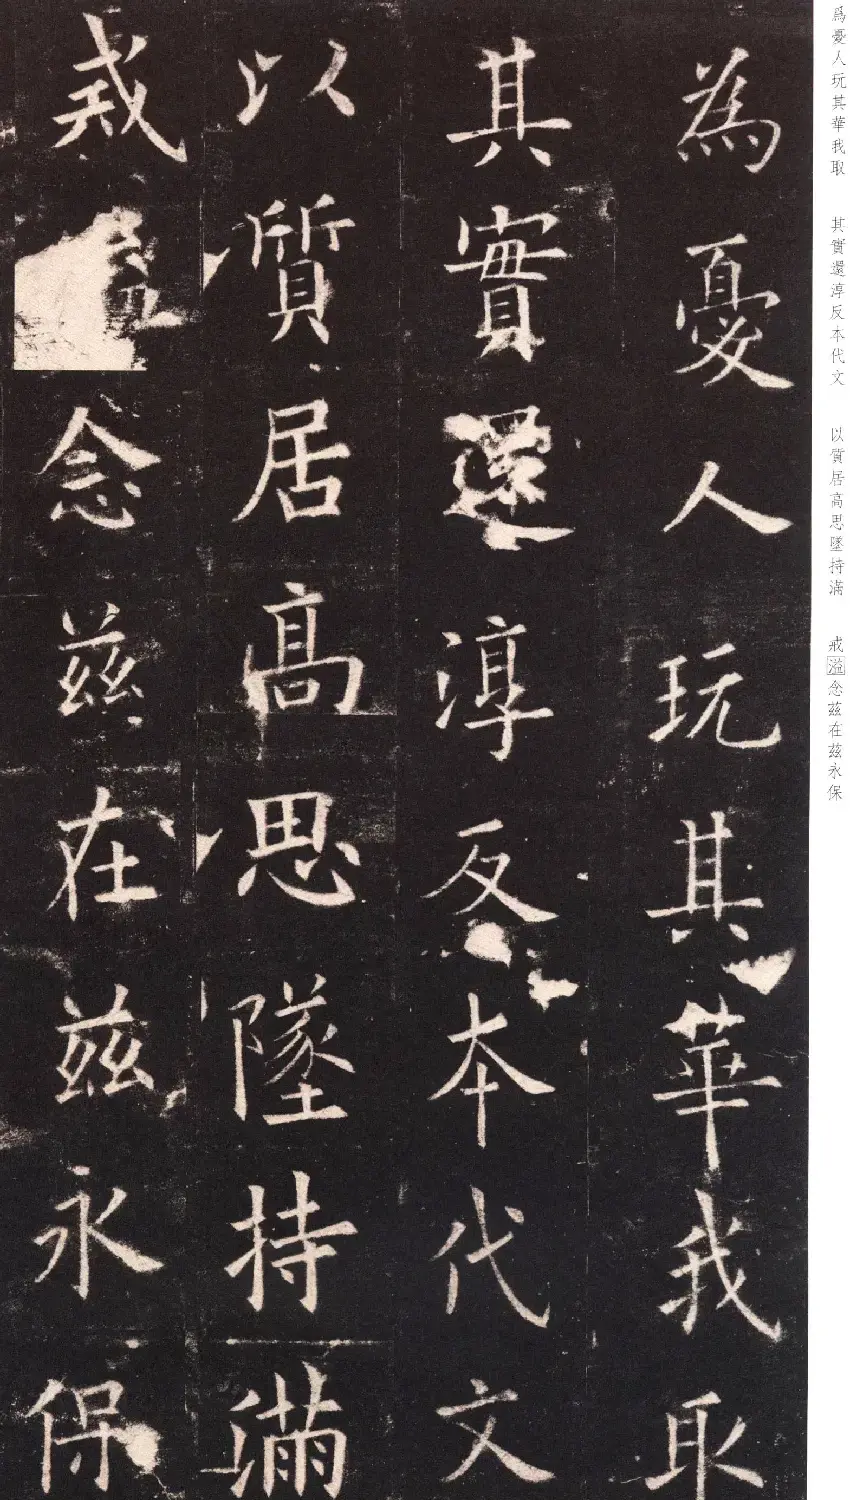 為憂人玩其華我取
其實還淳反本代文
以質居高思墜持滿
戒溢念茲在茲永保
爲憂人玩其華我取
其實還淳反本代文
以質居高思墜持滿
戒溢念茲在茲永保